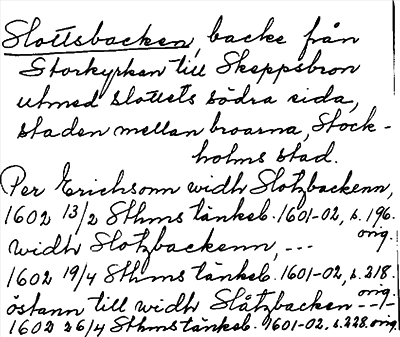 Slottsbacken, backe från
Storkyrkan till Skeppsbron
utmed slottets södra sida,
staden mellan broarna, Stock-
holms stad.
Per Erichsonn widh Slotzbackenn,
1602 13/2 Sthms tänkeb. 1601-02, s. 196.
orig.
widh Slotzbackenn, ---
1602 19/4 Sthms tänkeb. 1601-02, s. 218.
orig.
östann till widh Slåtzbacken ---
1602 26/4 Sthms tänkeb. 1601-02, s. 228. orig.